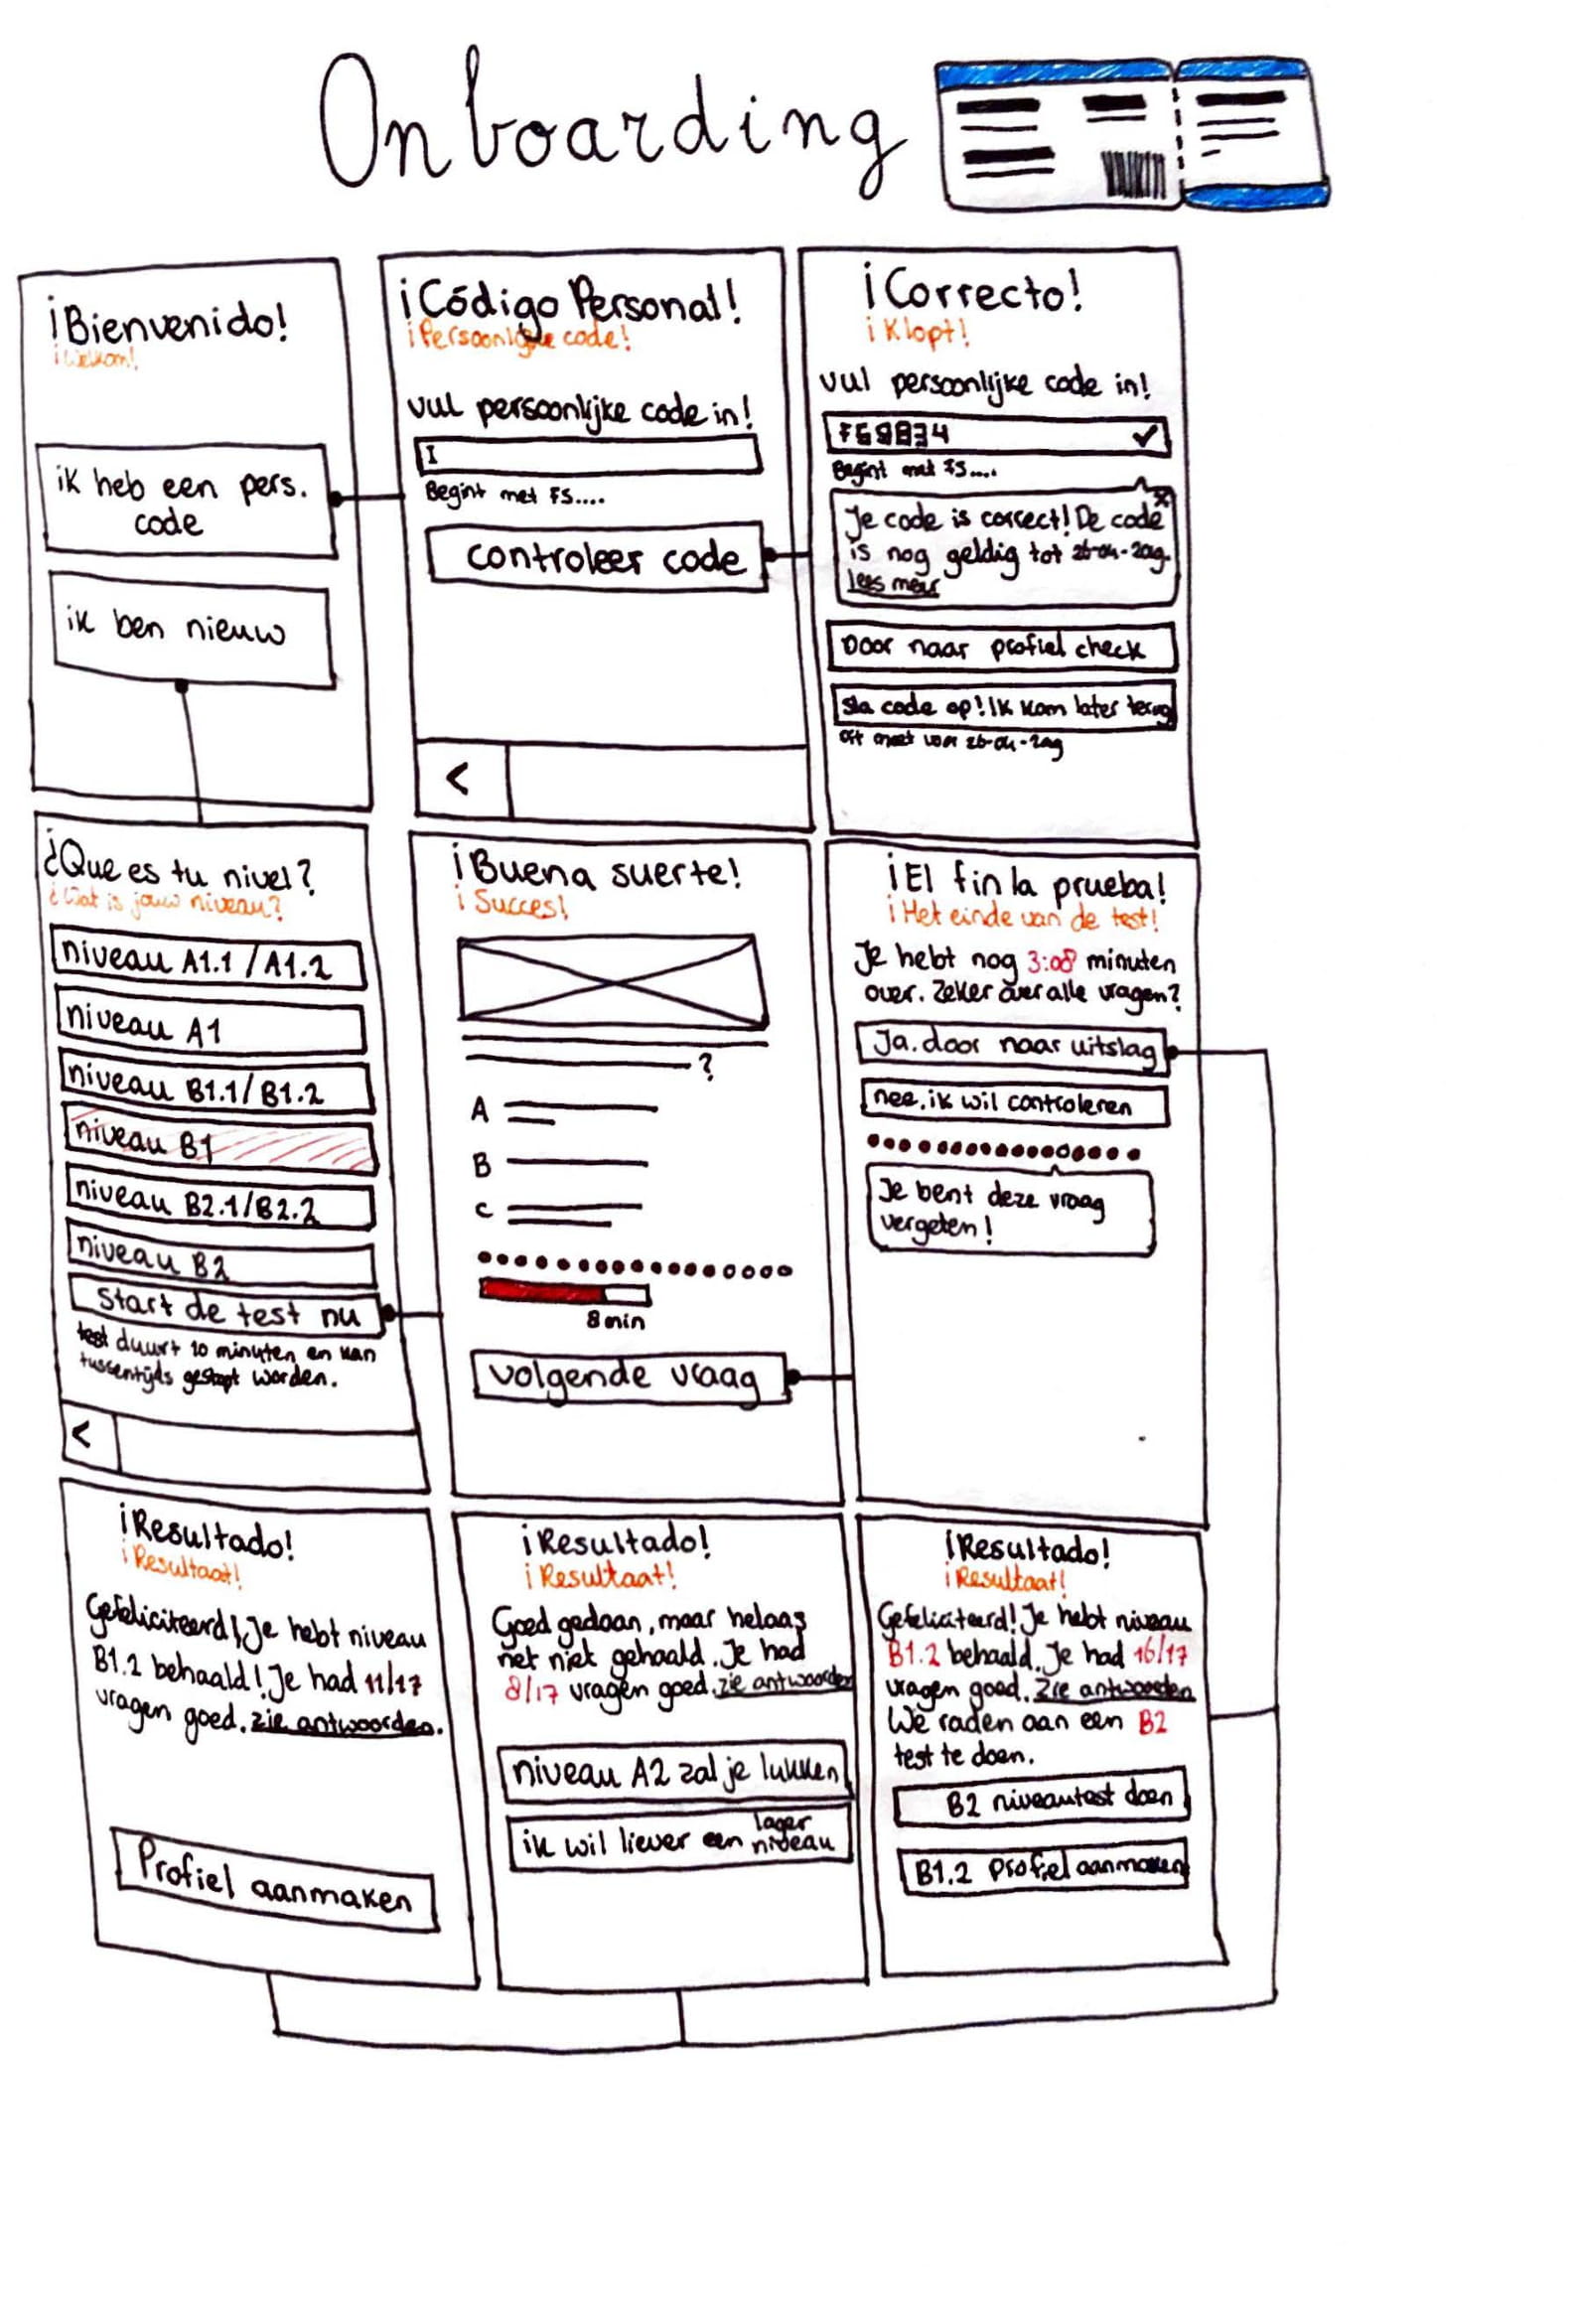 Onboarding
¡Bienvenido!
¡Welkom!
ik heb een pers.
code
ik ben nieuw
¡Código Personal!
¡Persoonlijke code!
vul persoonlijke code in!
I
Begint met FS....
controleer code
<
¡Correcto!
¡Klopt!
vul persoonlijke code in!
✓
Begint met FS....
x
Je code is correct! De code
is nog geldig tot 26-04-2019.
lees meer
Door naar profiel check
sla code op! Ik kom later terug
26-04-2019
¿Que es tu nivel?
¿Wat is jouw niveau?
niveau A1.1 / A1.2
niveau A1
niveau B1.1/B1.2
niveau B1
niveau B2.1/B2.2
niveau B2
start de test nu
test duurt 10 minuten en kan
tussentijds gestopt worden.
<
¡Buena suerte!
¡Succes!
?
A
B
C
8 min
volgende vraag
¡El fin la prueba!
¡Het einde van de test!
Je hebt nog 3:08 minuten
over. Zeker over alle vragen?
Ja. door naar uitslag
nee, ik wil controleren
Je bent deze vraag
vergeten!
¡Resultado!
¡Resultaat!
Gefeliciteerd! Je hebt niveau
B1.2 behaald! Je had 11/17
vragen goed. zie antwoorden.
Profiel aanmaken
¡Resultado!
¡Resultaat!
Goed gedaan, maar helaas
net niet gehaald. Je had
8/17 vragen goed. zie antwoorden
niveau A2 zal je lukken
ik wil liever een lager
niveau
¡Resultado!
¡Resultaat!
Gefeliciteerd! Je hebt niveau
B1.2 behaald. Je had 16/17
vragen goed. Zie antwoorden
We raden aan een B2
test te doen.
B2 niveautest doen
B1.2 Profiel aanmaken